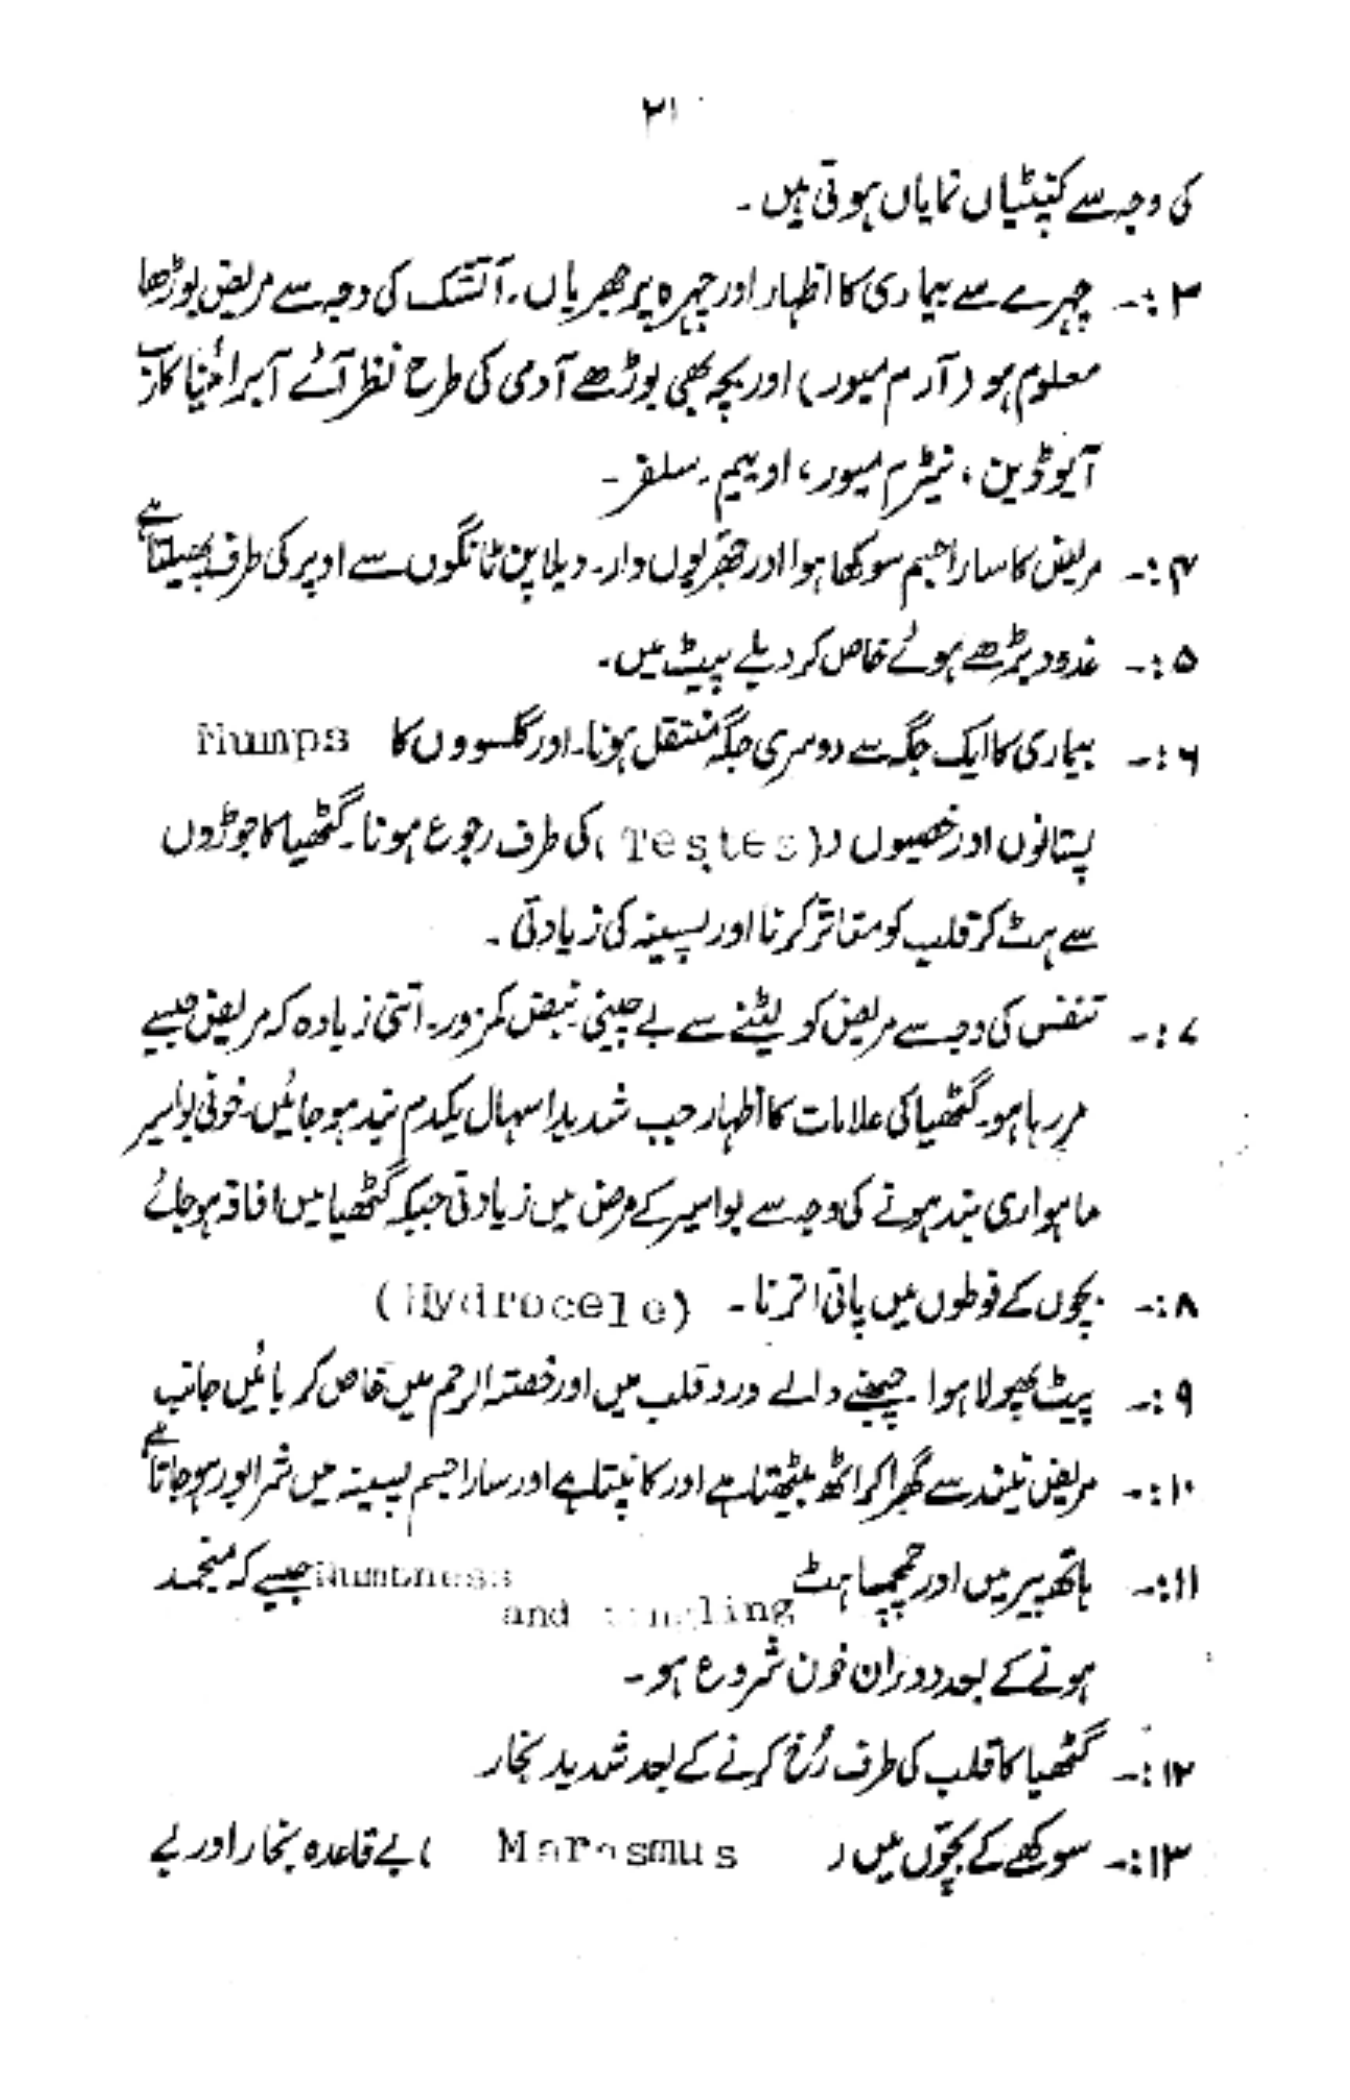 ۲۱
کی وجہ سے کنپٹیاں نمایاں ہوتی ہیں۔
۳:۔ چہرے سے بیماری کا اظہار اور چہرہ پر جھریاں۔ آتشک کی وجہ سے مریض بوڑھا
معلوم ہو (آرم میور) اور بچہ بھی بوڑھے آدمی کی طرح نظر آئے آبراٹینا کارب
آیوڈین، نیٹرم میور، اوپیم۔ سلفر۔
۴:۔ مریض کا سارا جسم سوکھا ہوا اور جھریوں دار۔ دبلا پن ٹانگوں سے اوپر کی طرف پھیلتا ہے
۵:۔ غدود بڑھے ہوئے خاص کر دبلے پیٹ میں۔
۶:۔ بیماری کا ایک جگہ سے دوسری جگہ منتقل ہونا۔ اور گلسووں کا Mumps
پستانوں اور خصیوں (Testes) کی طرف رجوع ہونا۔ گٹھیا کا جوڑوں
سے ہٹ کر قلب کو متاثر کرنا اور پسینہ کی زیادتی۔
۷:۔ تنفس کی وجہ سے مریض کو لیٹنے سے بے چینی۔ نبض کمزور۔ اتنی زیادہ کہ مریض جیسے
مر رہا ہو۔ گٹھیا کی علامات کا اظہار جب شدید اسہال یکدم بند ہو جائیں۔ خونی بواسیر
ماہواری بند ہونے کی وجہ سے بواسیر کے مرض میں زیادتی جبکہ گٹھیا میں افاقہ ہو جائے
۸:۔ بچوں کے فوطوں میں پانی اترنا۔ (Hydrocele)
۹:۔ پیٹ پھولا ہوا۔ چبھنے والے درد قلب میں اور خصتہ الرحم میں خاص کر بائیں جانب
۱۰:۔ مریض نیند سے گھبرا کر اٹھ بیٹھتا ہے اور کانپتا ہے اور سارا جسم پسینہ میں شرابور ہو جاتا ہے
۱۱:۔ ہاتھ پیر میں اور چمچماہٹ Numbness and tingling جیسے کہ منجمد
ہونے کے بعد دوران خون شروع ہو۔
۱۲:۔ گٹھیا کا قلب کی طرف رُخ کرنے کے بعد شدید بخار
۱۳:۔ سوکھے کے بچّوں میں (Marasmus) بے قاعدہ بخار اور بے